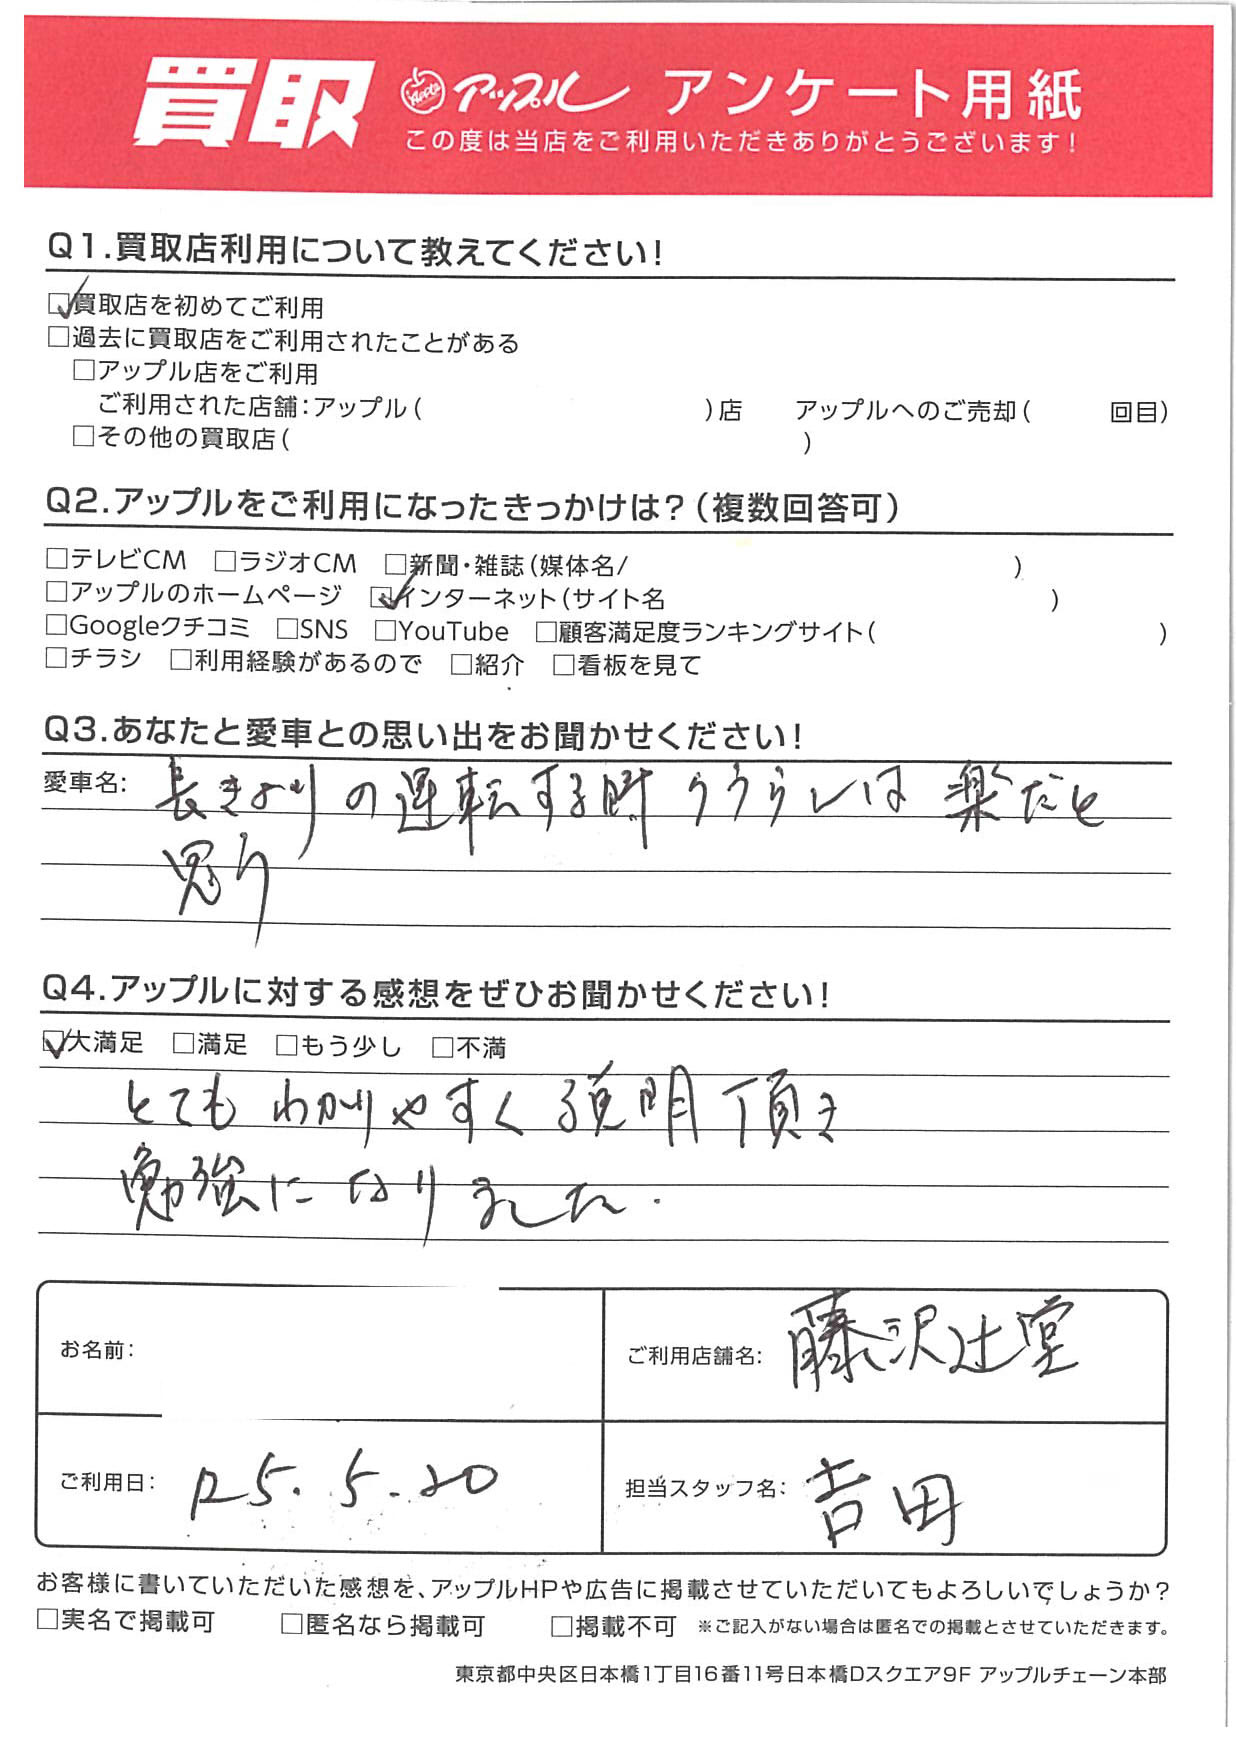 買取 Apple アップル アンケート用紙
この度は当店をご利用いただきありがとうございます!
Q1.買取店利用について教えてください!
☑買取店を初めてご利用
□過去に買取店をご利用されたことがある
□アップル店をご利用
ご利用された店舗:アップル( )店 アップルへのご売却( 回目)
□その他の買取店( )
Q2.アップルをご利用になったきっかけは?(複数回答可)
□テレビCM □ラジオCM □新聞・雑誌(媒体名/ )
□アップルのホームページ ☑インターネット(サイト名 )
□Googleクチコミ □SNS □YouTube □顧客満足度ランキングサイト( )
□チラシ □利用経験があるので □紹介 □看板を見て
Q3.あなたと愛車との思い出をお聞かせください!
愛車名: 長きょりの運転する時 クラウンは楽だと
思う
Q4.アップルに対する感想をぜひお聞かせください!
☑大満足 □満足 □もう少し □不満
とてもわかりやすく説明頂き
勉強になりました.
お名前:
ご利用店舗名: 藤沢辻堂
ご利用日: R5.5.20
担当スタッフ名: 吉田
お客様に書いていただいた感想を、アップルHPや広告に掲載させていただいてもよろしいでしょうか?
□実名で掲載可 □匿名なら掲載可 □掲載不可 ※ご記入がない場合は匿名での掲載とさせていただきます。
東京都中央区日本橋1丁目16番11号日本橋Dスクエア9F アップルチェーン本部